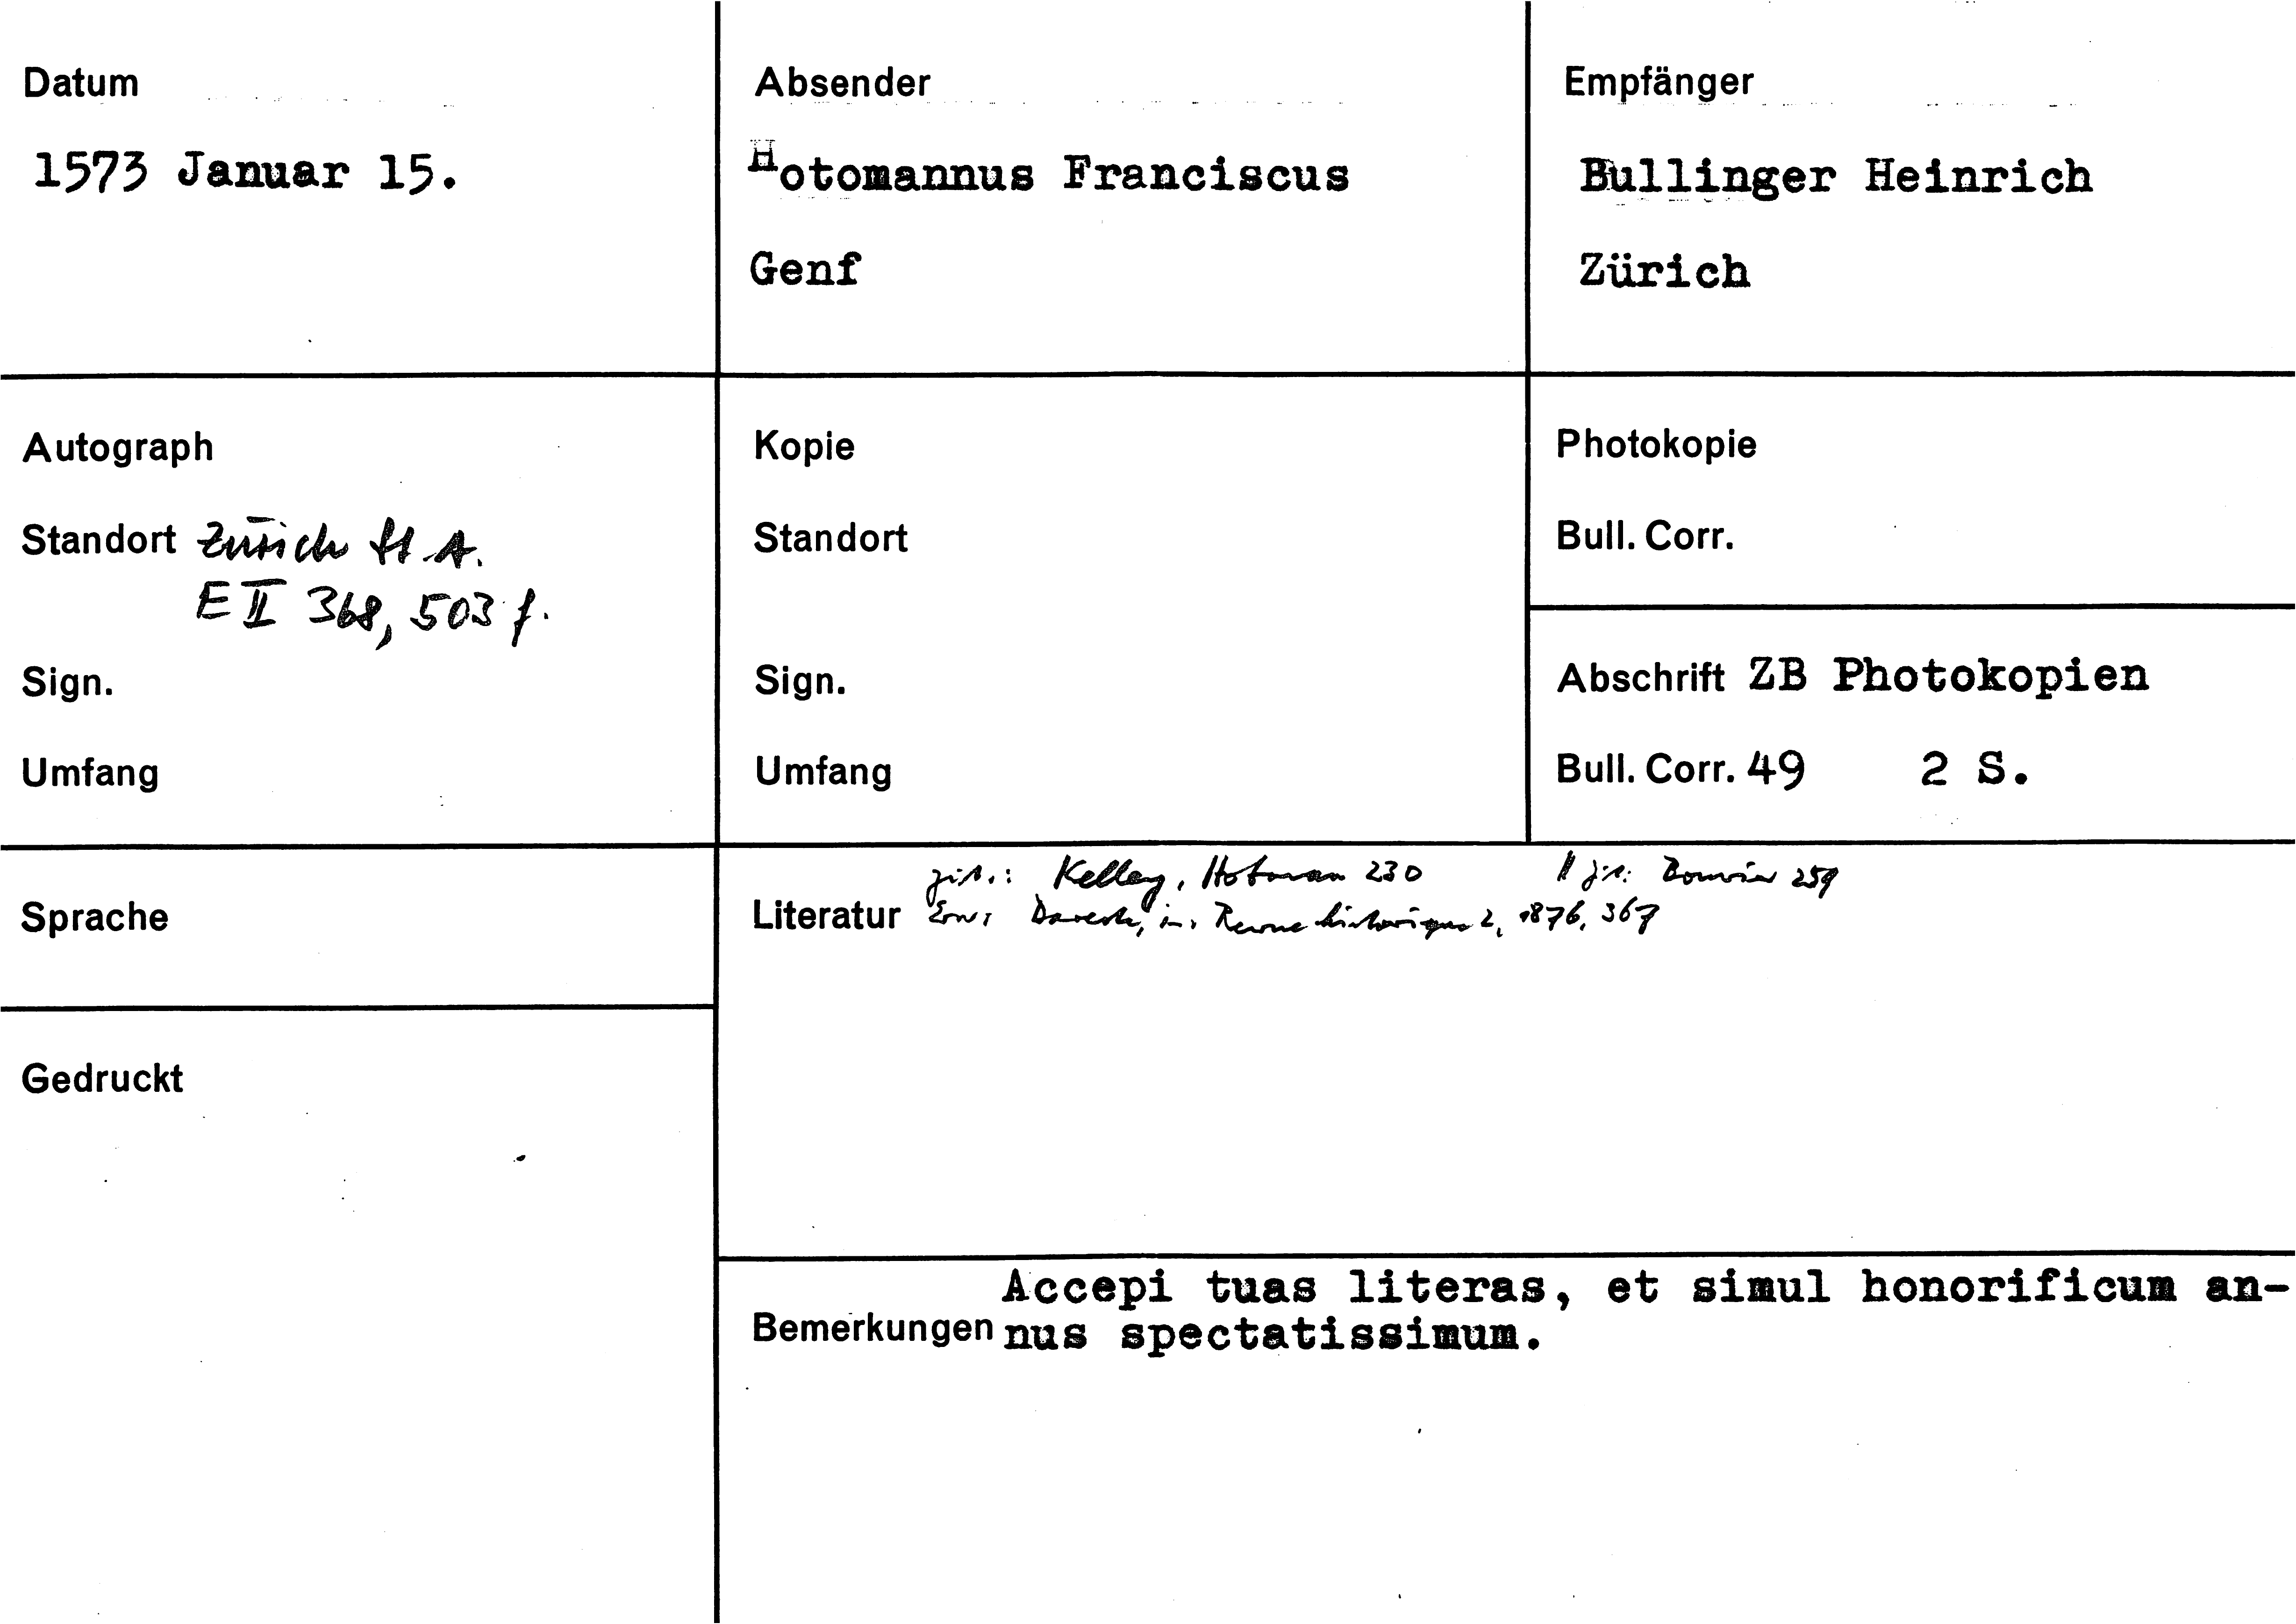 Datum
1573 Januar 15.
Absender
Hotomannus Franciscus
Genf
Empfänger
Bullinger Heinrich
Zürich
Autograph
Standort Zürich StA.
E II 368, 503 f.
Sign.
Umfang
Kopie
Standort
Sign.
Umfang
Photokopie
Bull. Corr.
Abschrift ZB Photokopien
Bull. Corr. 49 2 S.
Sprache
Gedruckt
zit.: Kelley, Hotman 230 // zit: Bouvier 259
Literatur Erw: Dareste, in: Revue historique 2, 1876, 367
Accepi tuas literas, et simul honorificum an-
Bemerkungen nus spectatissimum.